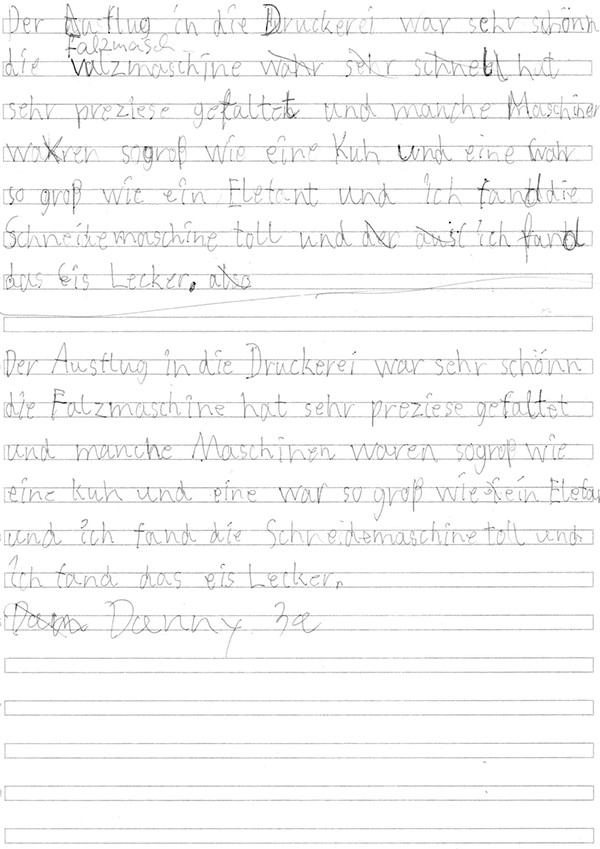 Der Ausflug in die Druckerei war sehr schönn
Falzmasch
die Valzmaschine wahr sehr schnell hat
sehr preziese gefaltet und manche Maschinen
waren sogroß wie eine Kuh und eine wahr
so groß wie ein Elefant und ich fand die
Schneidemaschine toll und der ich fand
das Eis Lecker. also
Der Ausflug in die Druckerei war sehr schönn
die Falzmaschine hat sehr preziese gefaltet
und manche Maschinen waren sogroß wie
eine Kuh und eine war so groß wie ein Elefan
und ich fand die Schneidemaschine toll und
ich fand das eis Lecker.
Danny 3a